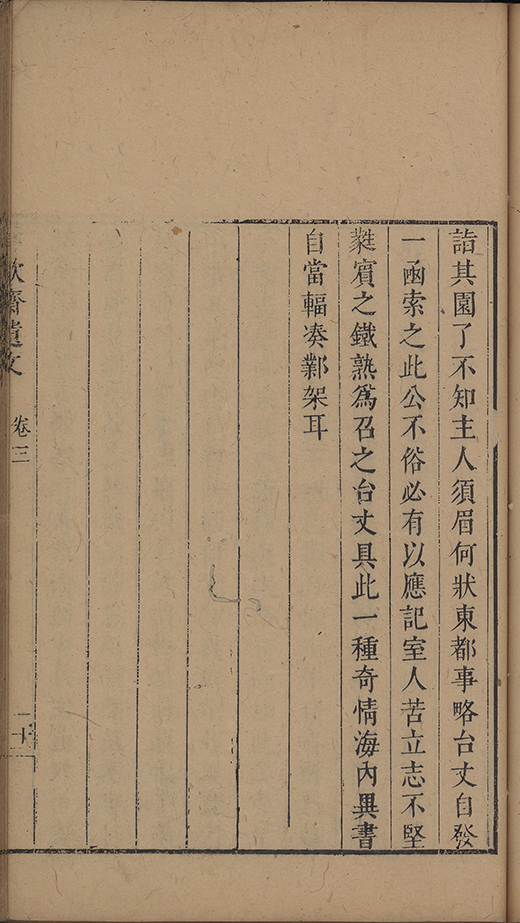 詣其園了不知主人須眉何狀東都事略台丈自發
一函索之此公不俗必有以應記室人苦立志不堅
蕤賓之鐵熟爲召之台丈具此一種奇情海內異書
自當輻凑鄴架耳
齋遺文
卷三